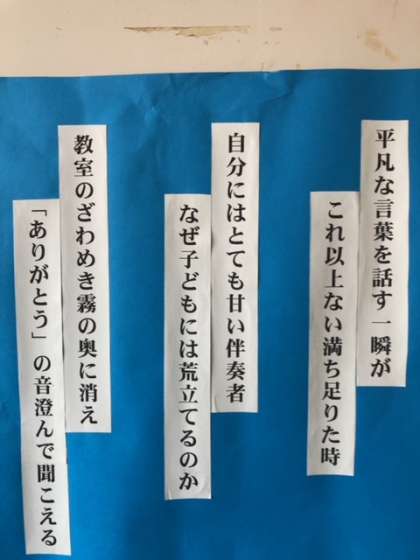 平凡な言葉を話す一瞬が
これ以上ない満ち足りた時
自分にはとても甘い伴奏者
なぜ子どもには荒立てるのか
教室のざわめき霧の奥に消え
「ありがとう」の音澄んで聞こえる